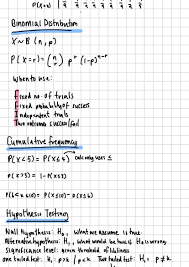 Binomial Distribution
X ~ B (n, p)
P(X=r) = (n r) p^r (1-p)^n-r
When to use:
Fixed no. of trials
Fixed probability of success
Independent trials
Two outcomes success/fail
Cumulative frequency
P(X<5) = P(X≤4) calc only uses ≤
Hypothesis Testing
Null Hypothesis: H₀, What we assume is true
Alternative hypothesis: H₁, What would be true if H₀ is wrong
Significance level: given threshold of
one tailed test: H₁: p>k / p<k Two tailed test: H₁: p≠k